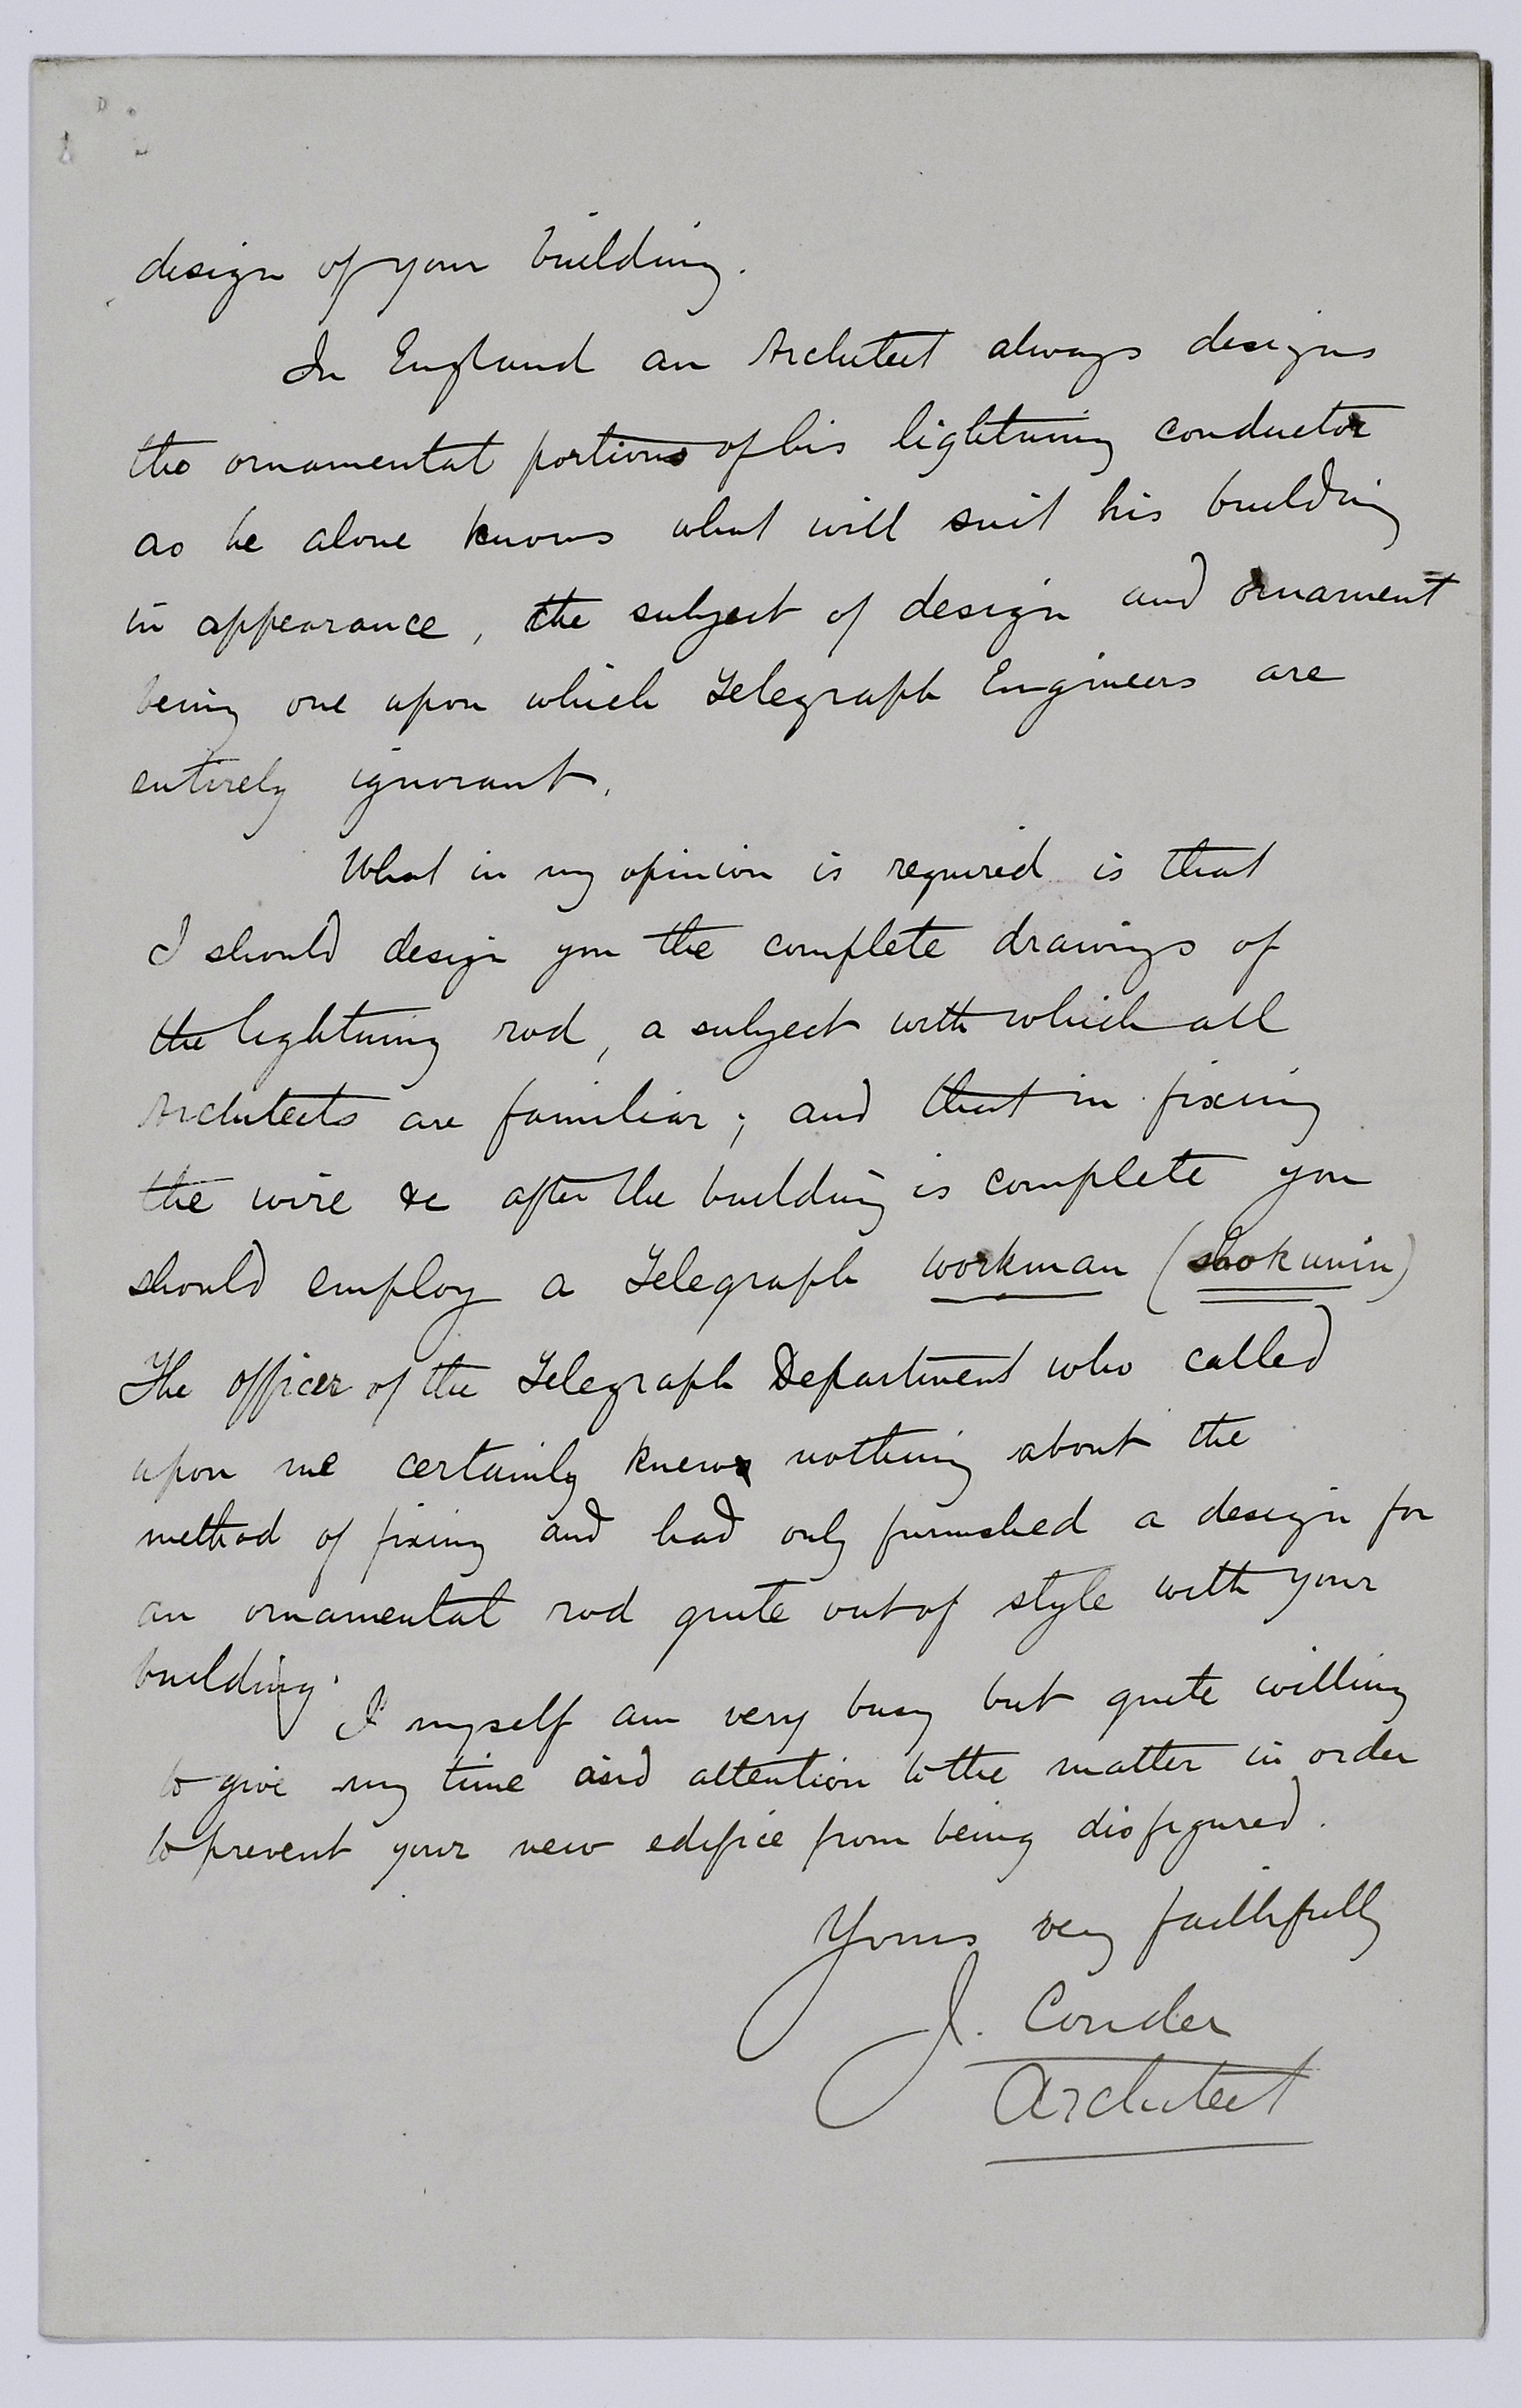 design of your building.
In England an Architect always designs
the ornamental portions of his lightning conductor
as he alone knows what will suit his building
in appearance, the subject of design and ornament
being one upon which Telegraph Engineers are
entirely ignorant.
What in my opinion is required is that
I should design you the complete drawings of
the lightning rod, a subject with which all
Architects are familiar; and that in fixing
the wire &c after the building is complete you
should employ a Telegraph workman (shokunin)
The officer of the Telegraph Department who called
upon me certainly knew nothing about the
method of fixing and had only furnished a design for
an ornamental rod quite out of style with your
building.
I myself am very busy but quite willing
to give my time and attention to the matter in order
to prevent your new edifice from being disfigured.
Yours very faithfully
J. Conder
Architect